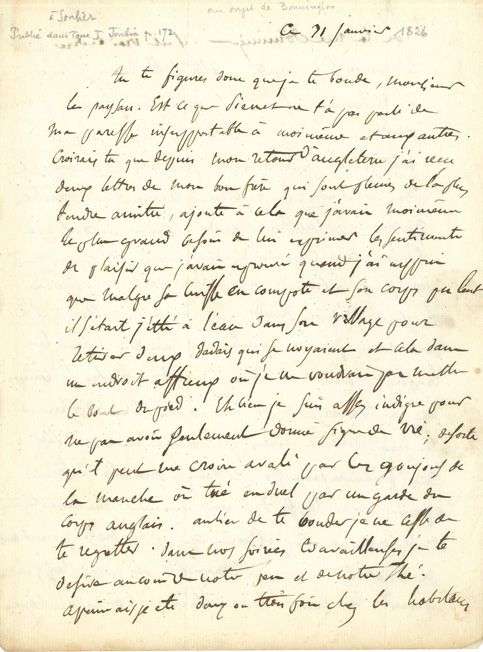 à Soulier
au sujet de Bonington
Publié dans Tome I Joubin p. 172
Ce 31 janvier 1826
Tu te figures donc que je te boude, monsieur
le paysan. Est ce que Pierret ne t'a pas parlé de
ma paresse insupportable à moi même et aux autres.
Croirais tu que depuis mon retour d'angleterre j'ai reçu
deux lettres de mon bon frère qui sont pleines de la plus
tendre amitié, ajoute à cela que j'avais moi même
le plus grand besoin de lui exprimer les sentiments
de plaisir que j'avais éprouvé quand j'ai appris
que malgré sa cuisse en compote et son corps
il s'était jetté à l'eau dans son village pour
retirer deux dadais qui se noyaient et cela dans
un endroit affreux où je ne voudrais pas mettre
le bout du pied. Eh bien je suis assez indigne pour
ne pas avoir seulement donné signe de vie; de sorte
qu'il peut me croire avalé par les goujons de
la manche ou tué en duel par un garde du
corps anglais. au lieu de te bouder je ne cesse de
te regretter. dans nos soirées je te
désire au coin de notre feu et de notre thé.
a-t-on jeté deux ou trois fois chez les